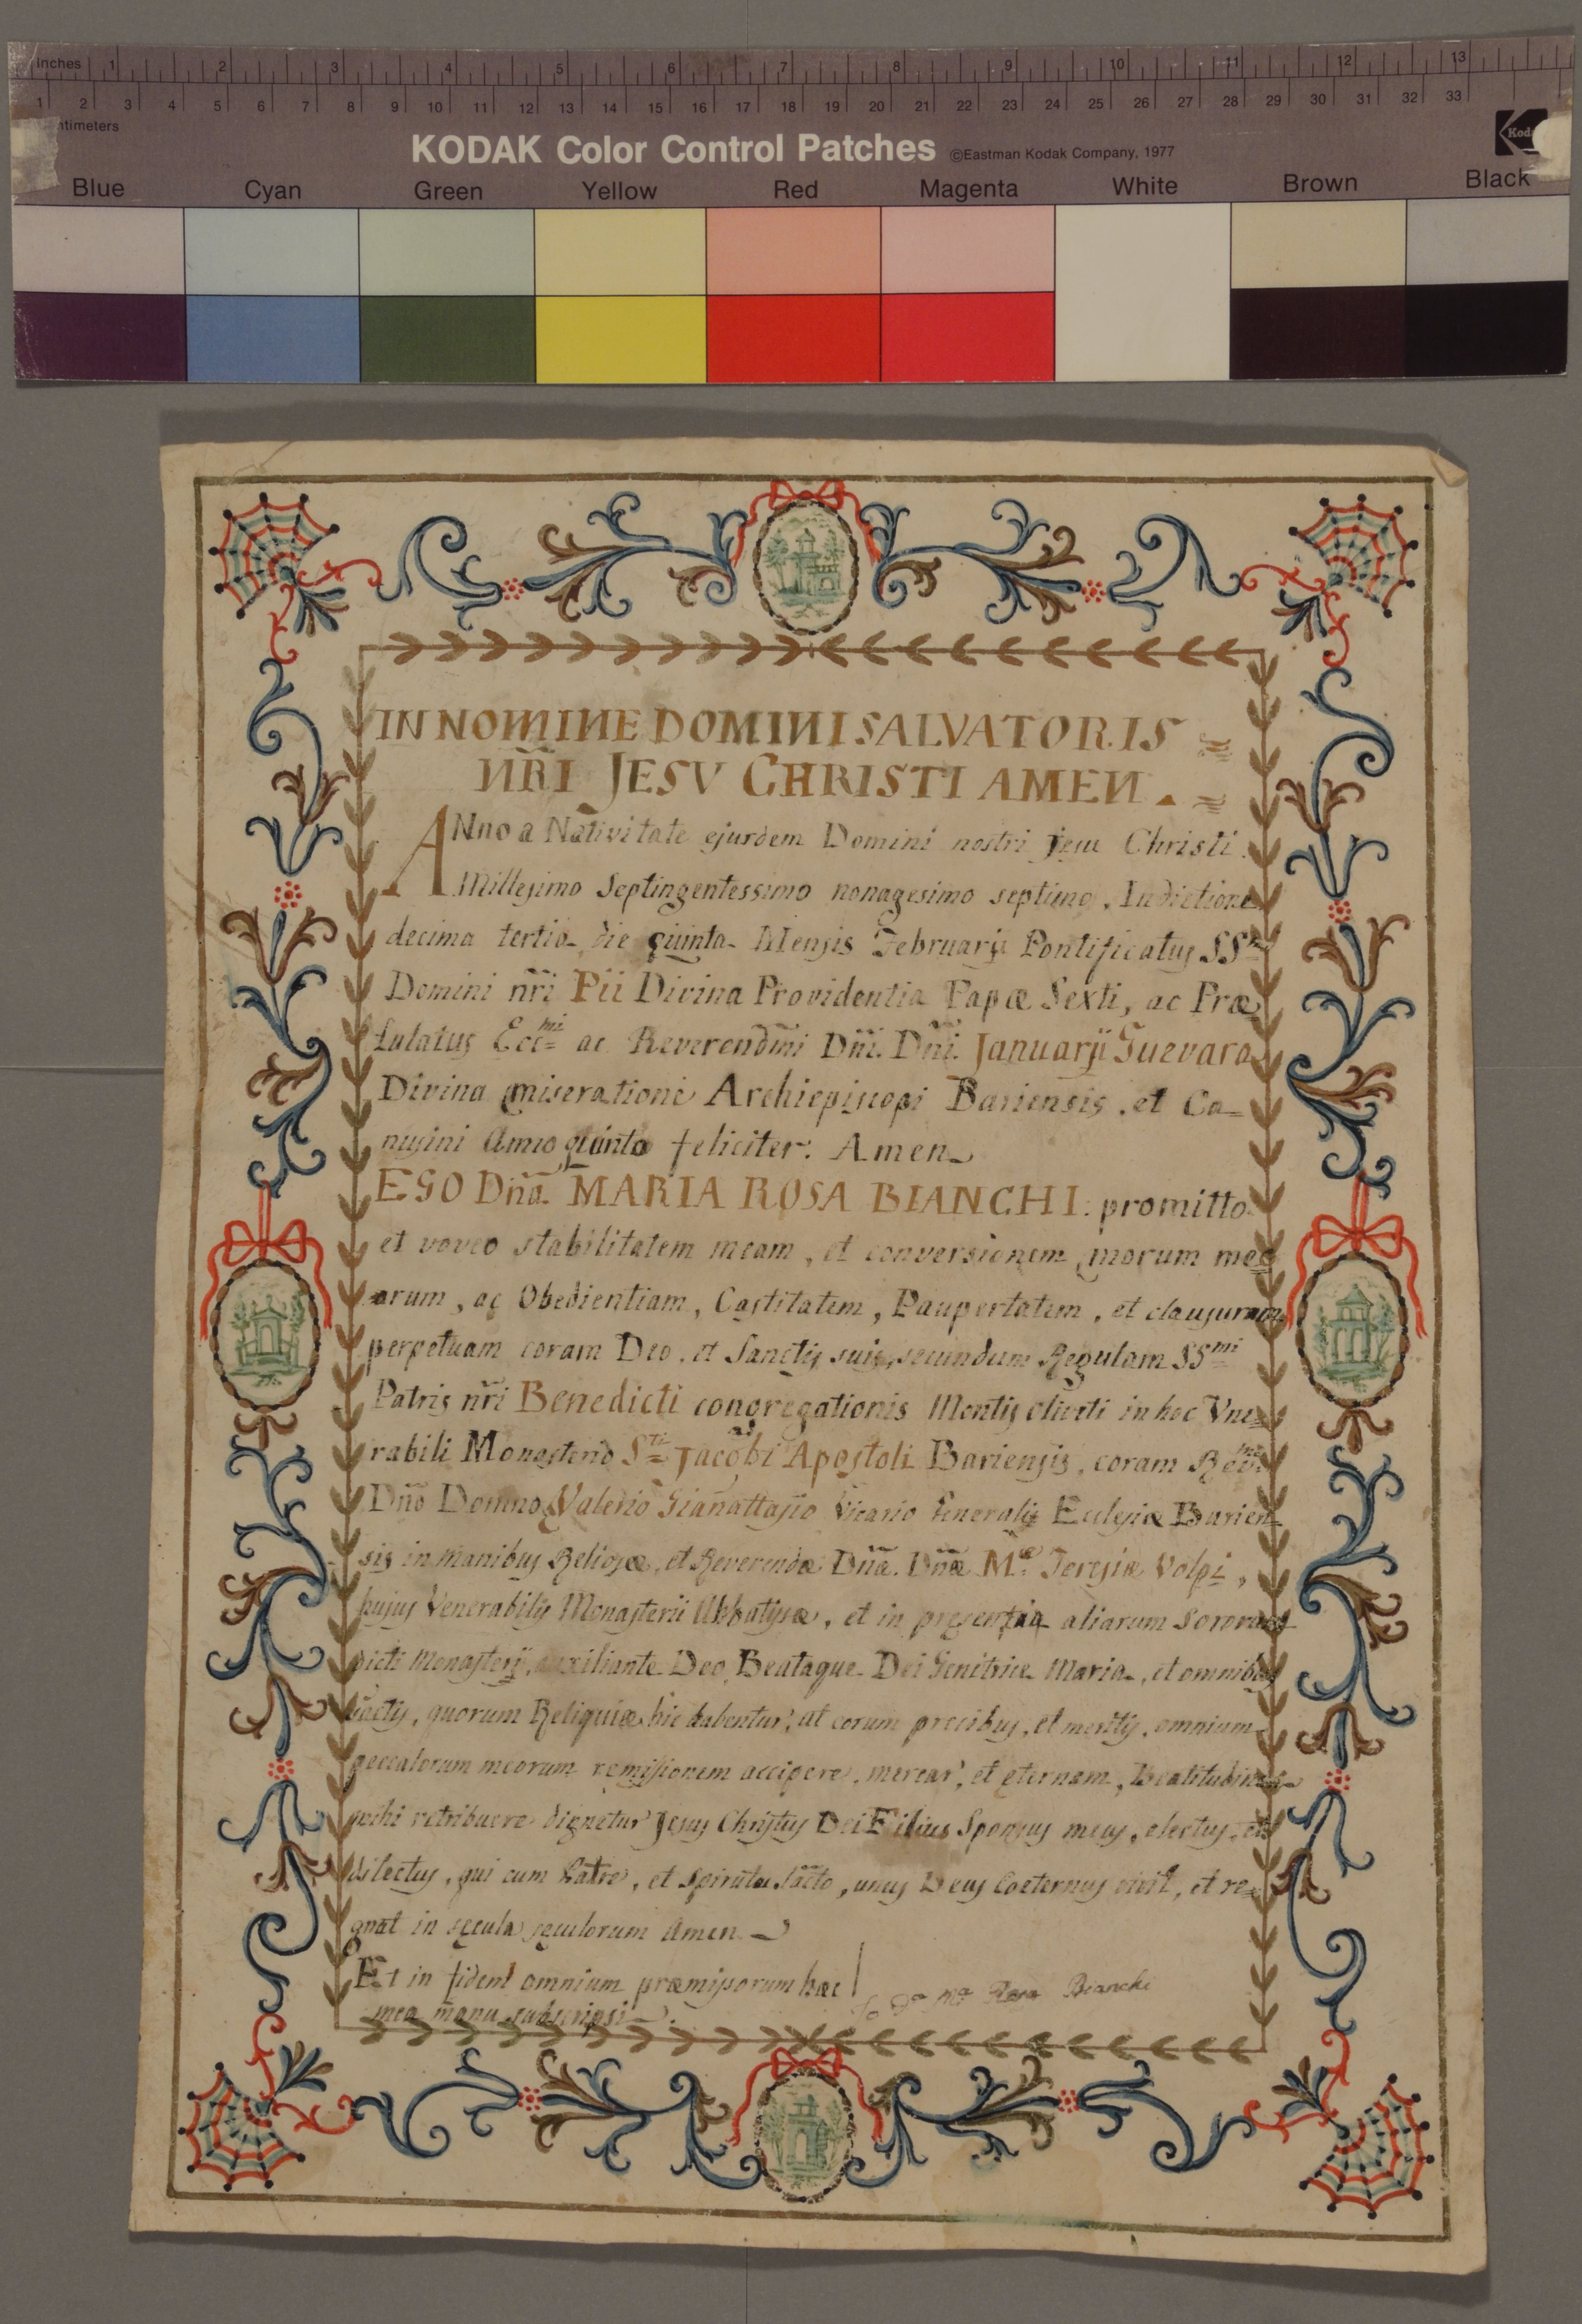 Inches 1 2 3 4 5 6 7 8 9 10 11 12 13
1 2 3 4 5 6 7 8 9 10 11 12 13 14 15 16 17 18 19 20 21 22 23 24 25 26 27 28 29 30 31 32 33
ntimeters
KODAK Color Control Patches ©Eastman Kodak Company, 1977
Blue Cyan Green Yellow Red Magenta White Brown Black
IN NOMINE DOMINI SALVATORIS
ÑRI JESV CHRISTI AMEN.
ANno a Nativitate ejusdem Domini nostri Jesu Christi
Millesimo Septingentessimo nonagesimo septimo, Indictione
decima tertia, die quinta Mensis Februarij Pontificatus SS
Domini nr̃i Pii Divina Providentia Papæ Sexti, ac Præ
lulatus Ecc.mi ac Reverendm̃i Dñi. Dñi. Januarij Guevara
Divina miseratione Archiepiscopi Bariensis, et Ca-
nusini Anno quinto feliciter: Amen
EGO Dña. MARIA ROSA BIANCHI: promitto
et voveo stabilitatem meam, et conversionem morum me
arum, ac Obedientiam, Castitatem, Paupertatem, et clausuram
perpetuam coram Deo, et Sanctis suis, secundum Regulam SSmi
Patris nr̃i Benedicti congregationis Montis oliveti in hoc Vne
rabili Monasterio Sti Jacobi Apostoli Bariensis, coram Rev
Dño Domno Valerio Giañattasio Vicario Generalis Ecclesiæ Barien
sis in manibus Religosæ, et Reverendæ Dñæ. Dñæ Mæ Teresiæ Volpi,
hujus Venerabilis Monasterii Abbatissæ, et in presentia aliarum sororum
dicti Monasterij, auxiliante Deo, Beataque Dei Genitrice Maria, et omnibus
sãctis, quorum Reliquiæ hic habentur, ut eorum precibus, et meritis, omnium
peccatorum meorum remissionem accipere, merear, et eternam, Beatitudinem
mihi retribuere dignetur Jesus Christus Dei Filius Sponsus meus, electus, et
dilectus, qui cum Patre, et Spiritu Sãcto, unus Deus Coeternus vivit, et re
gnat in secula seculorum Amen
Et in fidem omnium præmissorum hæc
mea manu subscripsi
Io Da Ma Rosa Bianchi